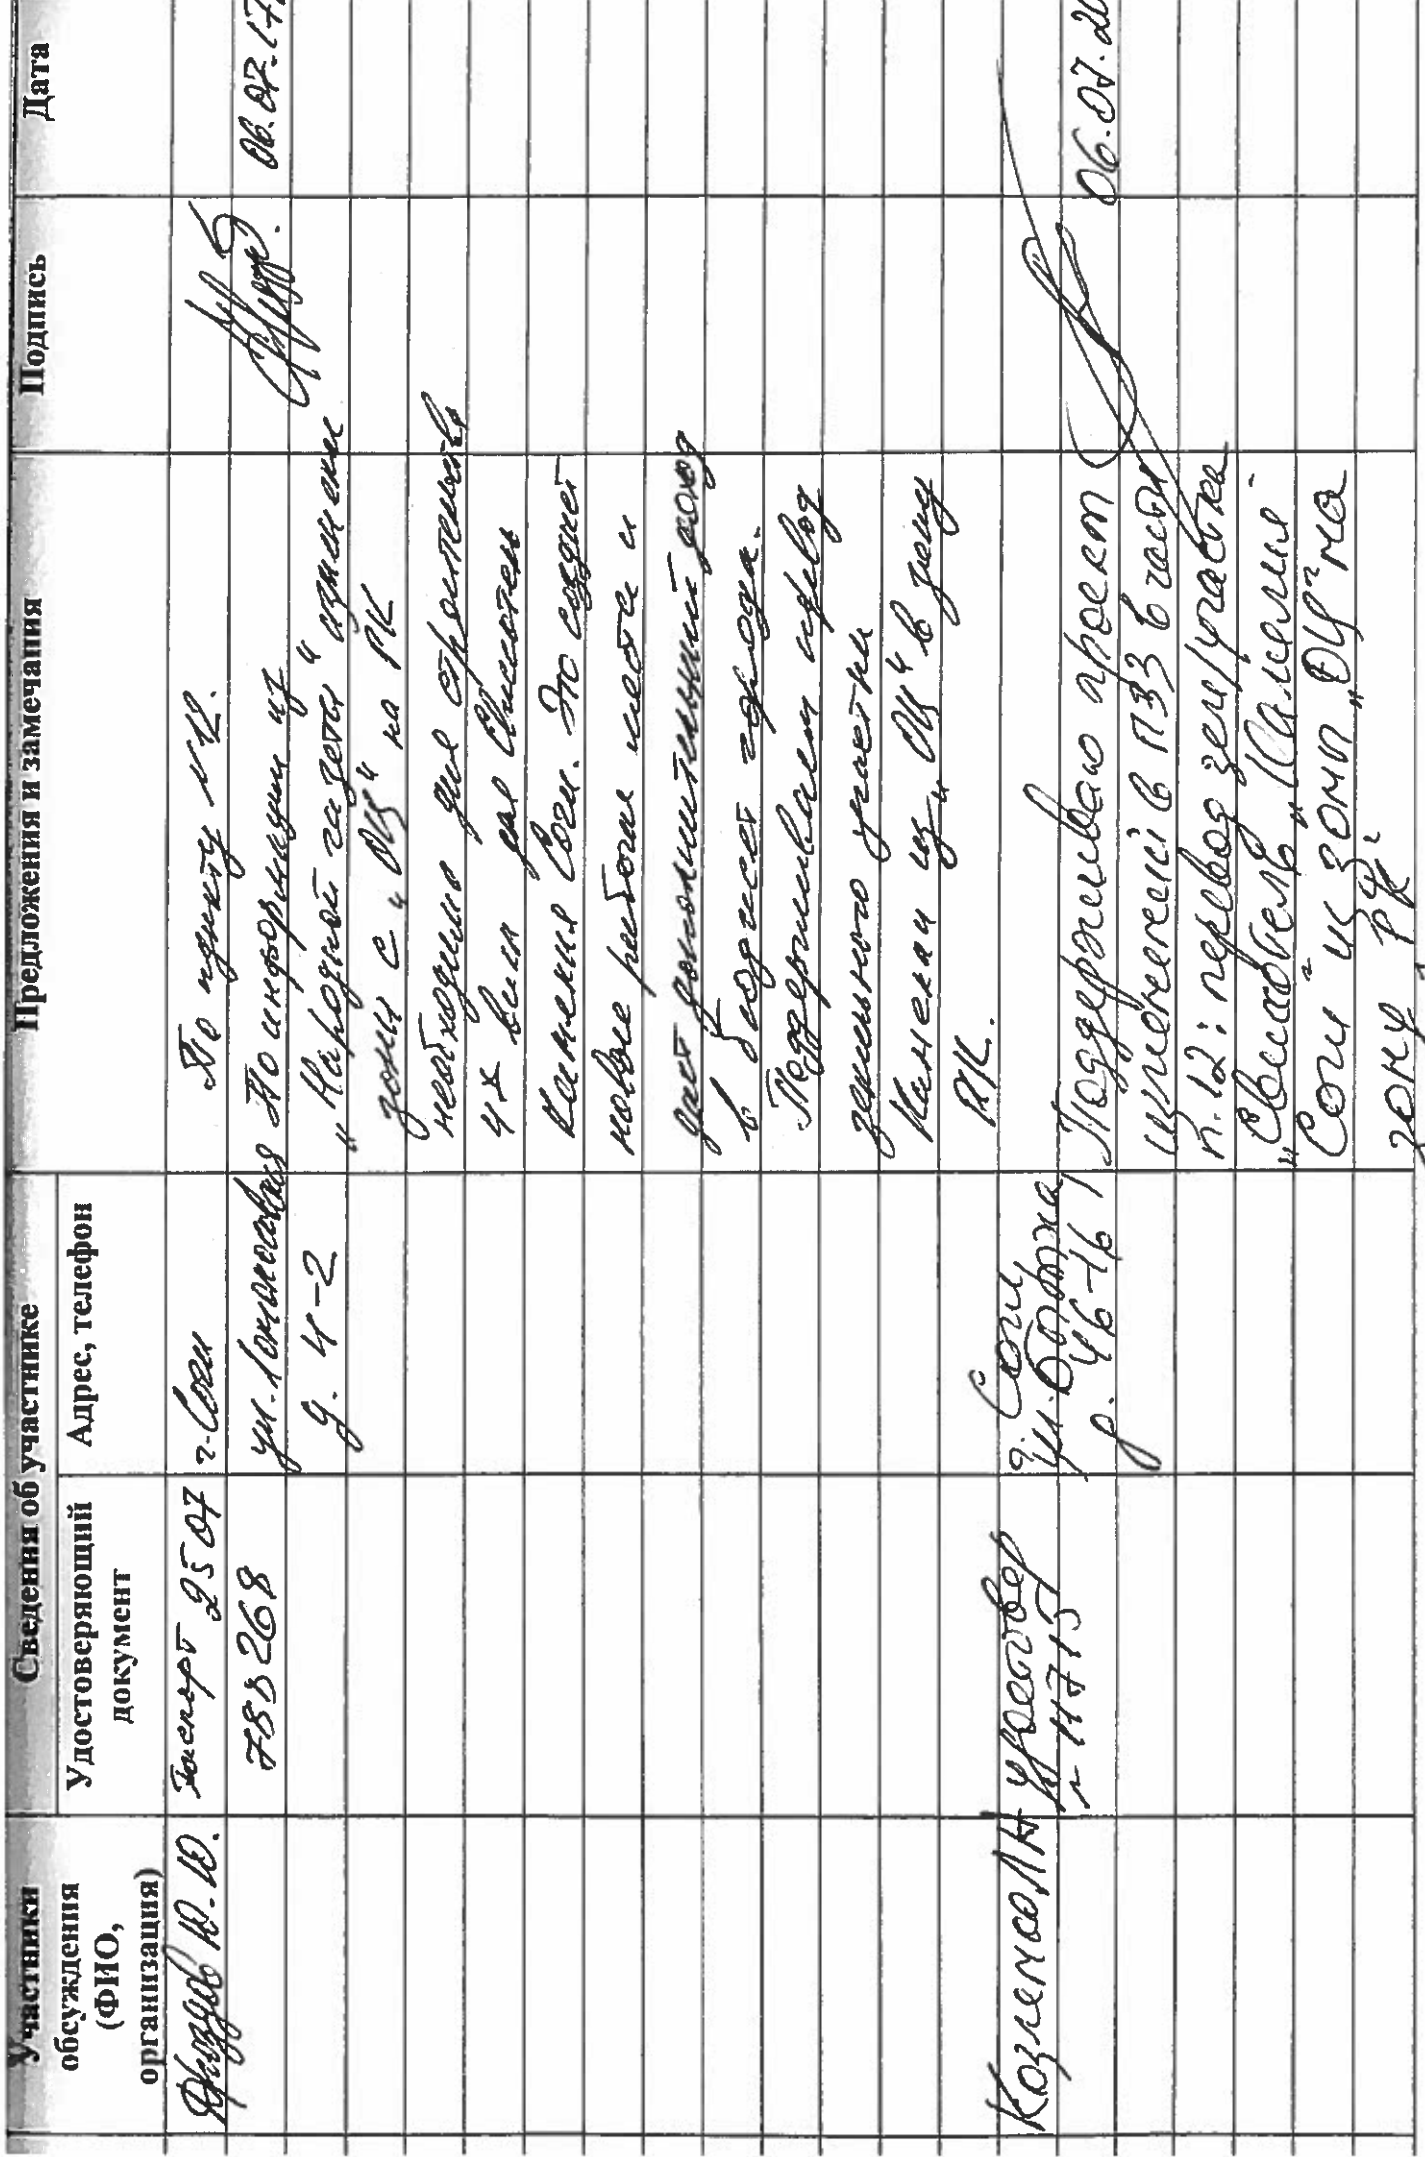 Участники обсуждения (ФИО, организация)
Сведения об участнике
Удостоверяющий документ
Адрес, телефон
Предложения и замечания
Подпись
Дата
Дроздов Ю.Ю.
Паспорт 2507
788268
г. Сочи
ул. Ломоносова
д. 4-2
По пункту №12.
По информации из
"Народной газеты" изменение
зоны с "ОЦ" на РК
необходимо для строительства
4х вилл
Камелия Сочи. Это создает
новые рабочие места и
даст дополнительный доход
в бюджет города.
Поддерживаем перевод
земельного участка
из "ОЦ" в зону
РК.
06.07.17
Козленко ЛН
11715
г. Сочи,
д. 46-16
Поддерживаю проект
изменений в ПЗЗ в части
п.12: перевод зем/участка
"Свиссотель "Камелия
Сочи" из зоны "ОЦ" на
зону "РК"
06.07.20